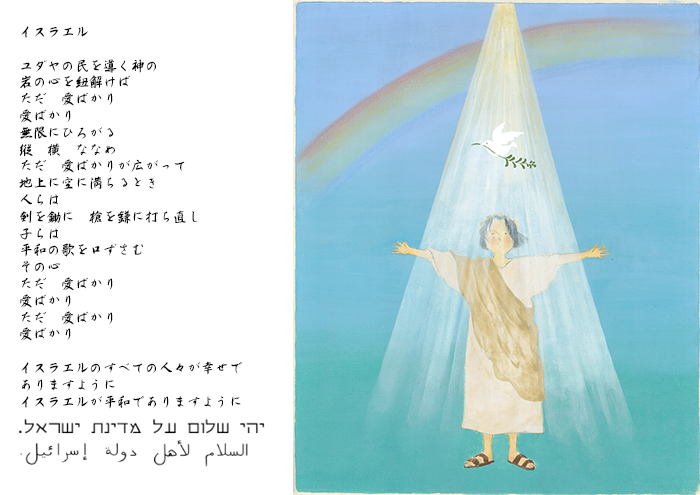 イスラエル
ユダヤの民を導く神の
岩の心を紐解けば
ただ　愛ばかり
愛ばかり
無限にひろがる
縦　横　ななめ
ただ　愛ばかりが広がって
地上に空に満ちるとき
人らは
剣を鋤に　槍を鎌に打ち直し
子らは
平和の歌を口ずさむ
その心
ただ　愛ばかり
愛ばかり
ただ　愛ばかり
愛ばかり
イスラエルのすべての人々が幸せで
ありますように
イスラエルが平和でありますように
יהי שלום על מדינת ישראל.
السلام لأهل دولة إسرائيل.